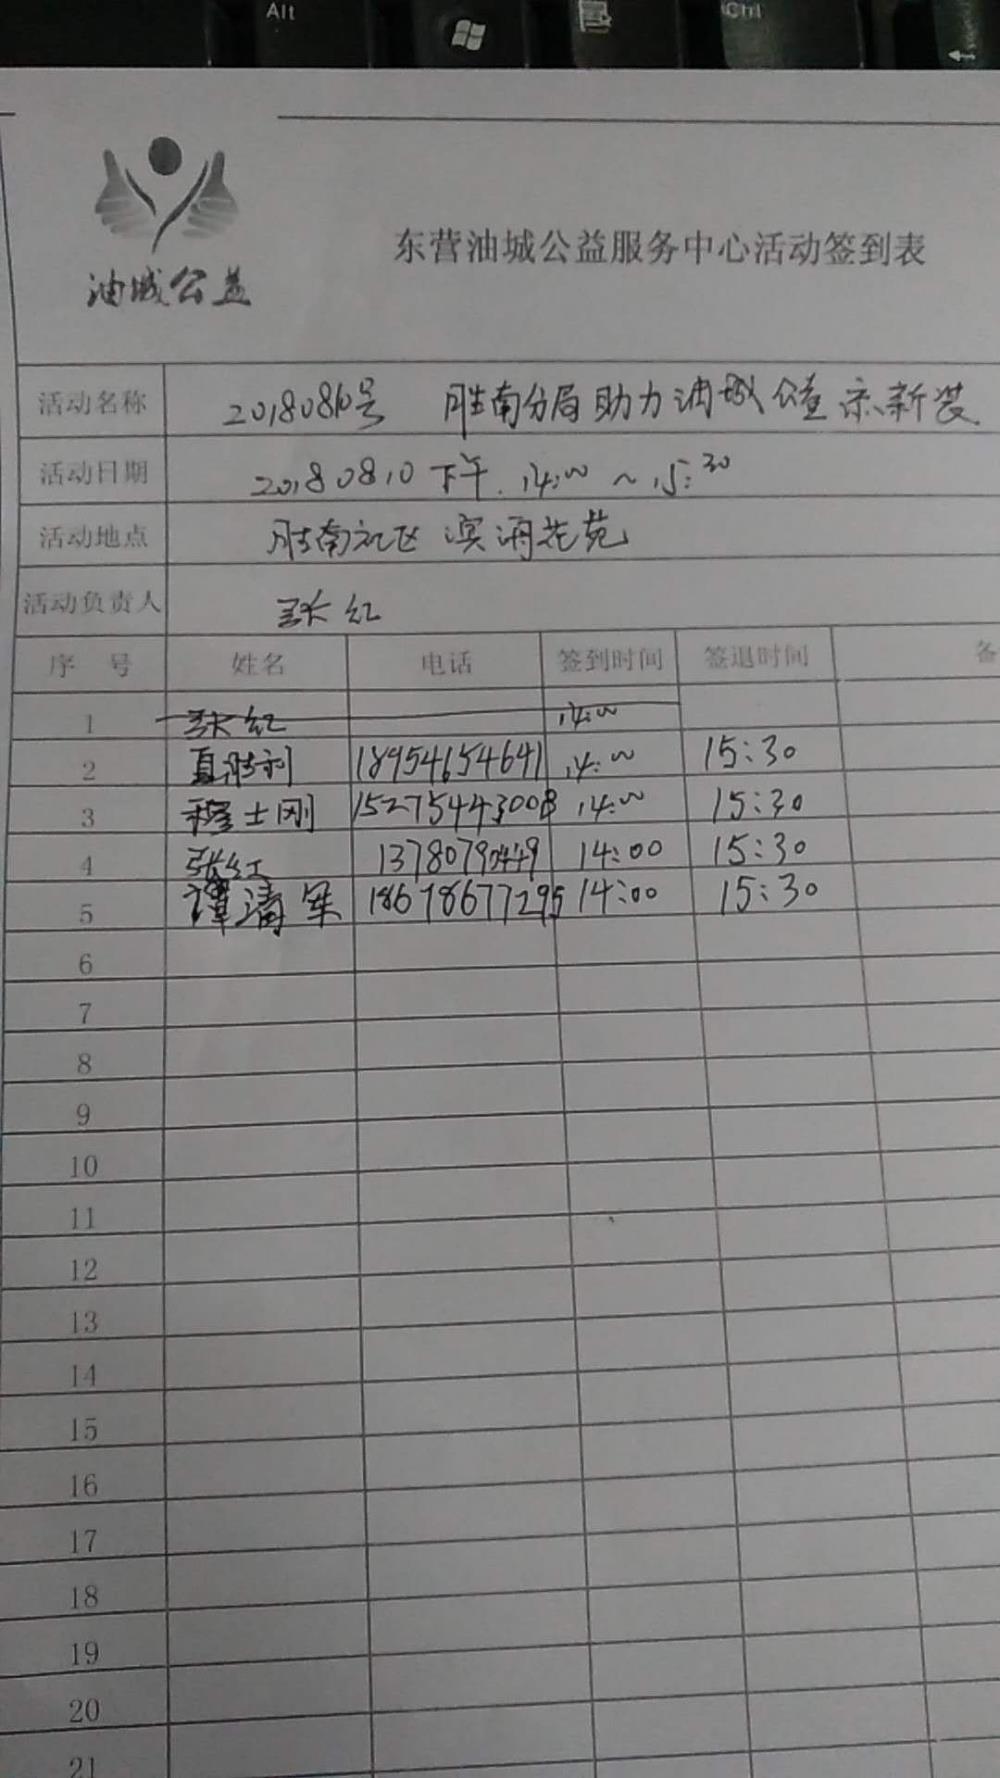 Alt
Ctrl
油城公益
东营油城公益服务中心活动签到表
活动名称 20180810号 胜南分局助力油城公益 新装
活动日期 20180810 下午 14:00 ~ 15:30
活动地点 胜南社区 滨海花苑
活动负责人 张红
序 号 姓名 电话 签到时间 签退时间 备
1 张红 14:00
2 夏胜利 18954654641 14:00 15:30
3 穆士刚 15275443008 14:00 15:30
4 张红 14:00 15:30
5 谭清军 18678677295 14:00 15:30
6
7
8
9
10
11
12
13
14
15
16
17
18
19
20
21